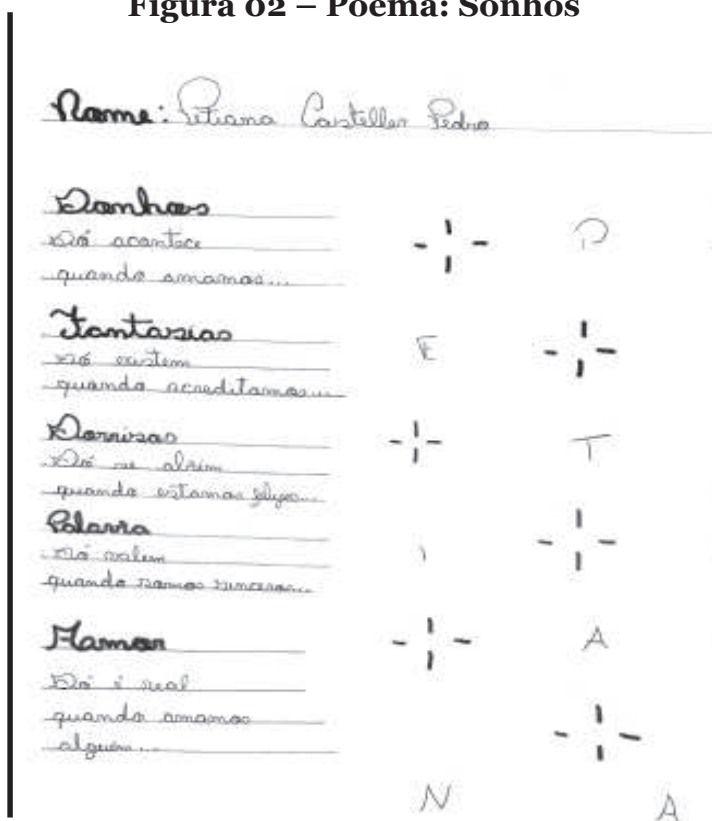 Figura 02 – Poema: Sonhos
Name: Pitiana Casteller Pedro
Sonhos
Só acontece
quando amamos...
Fantasias
Só existem
quando acreditamos...
Sorrisos
Só se abrim
quando estamos felizes...
Palavra
Só valem
quando somos sinceros...
Hamor
Só é real
quando amamos
alguém...
P
E
T
I
A
N
A